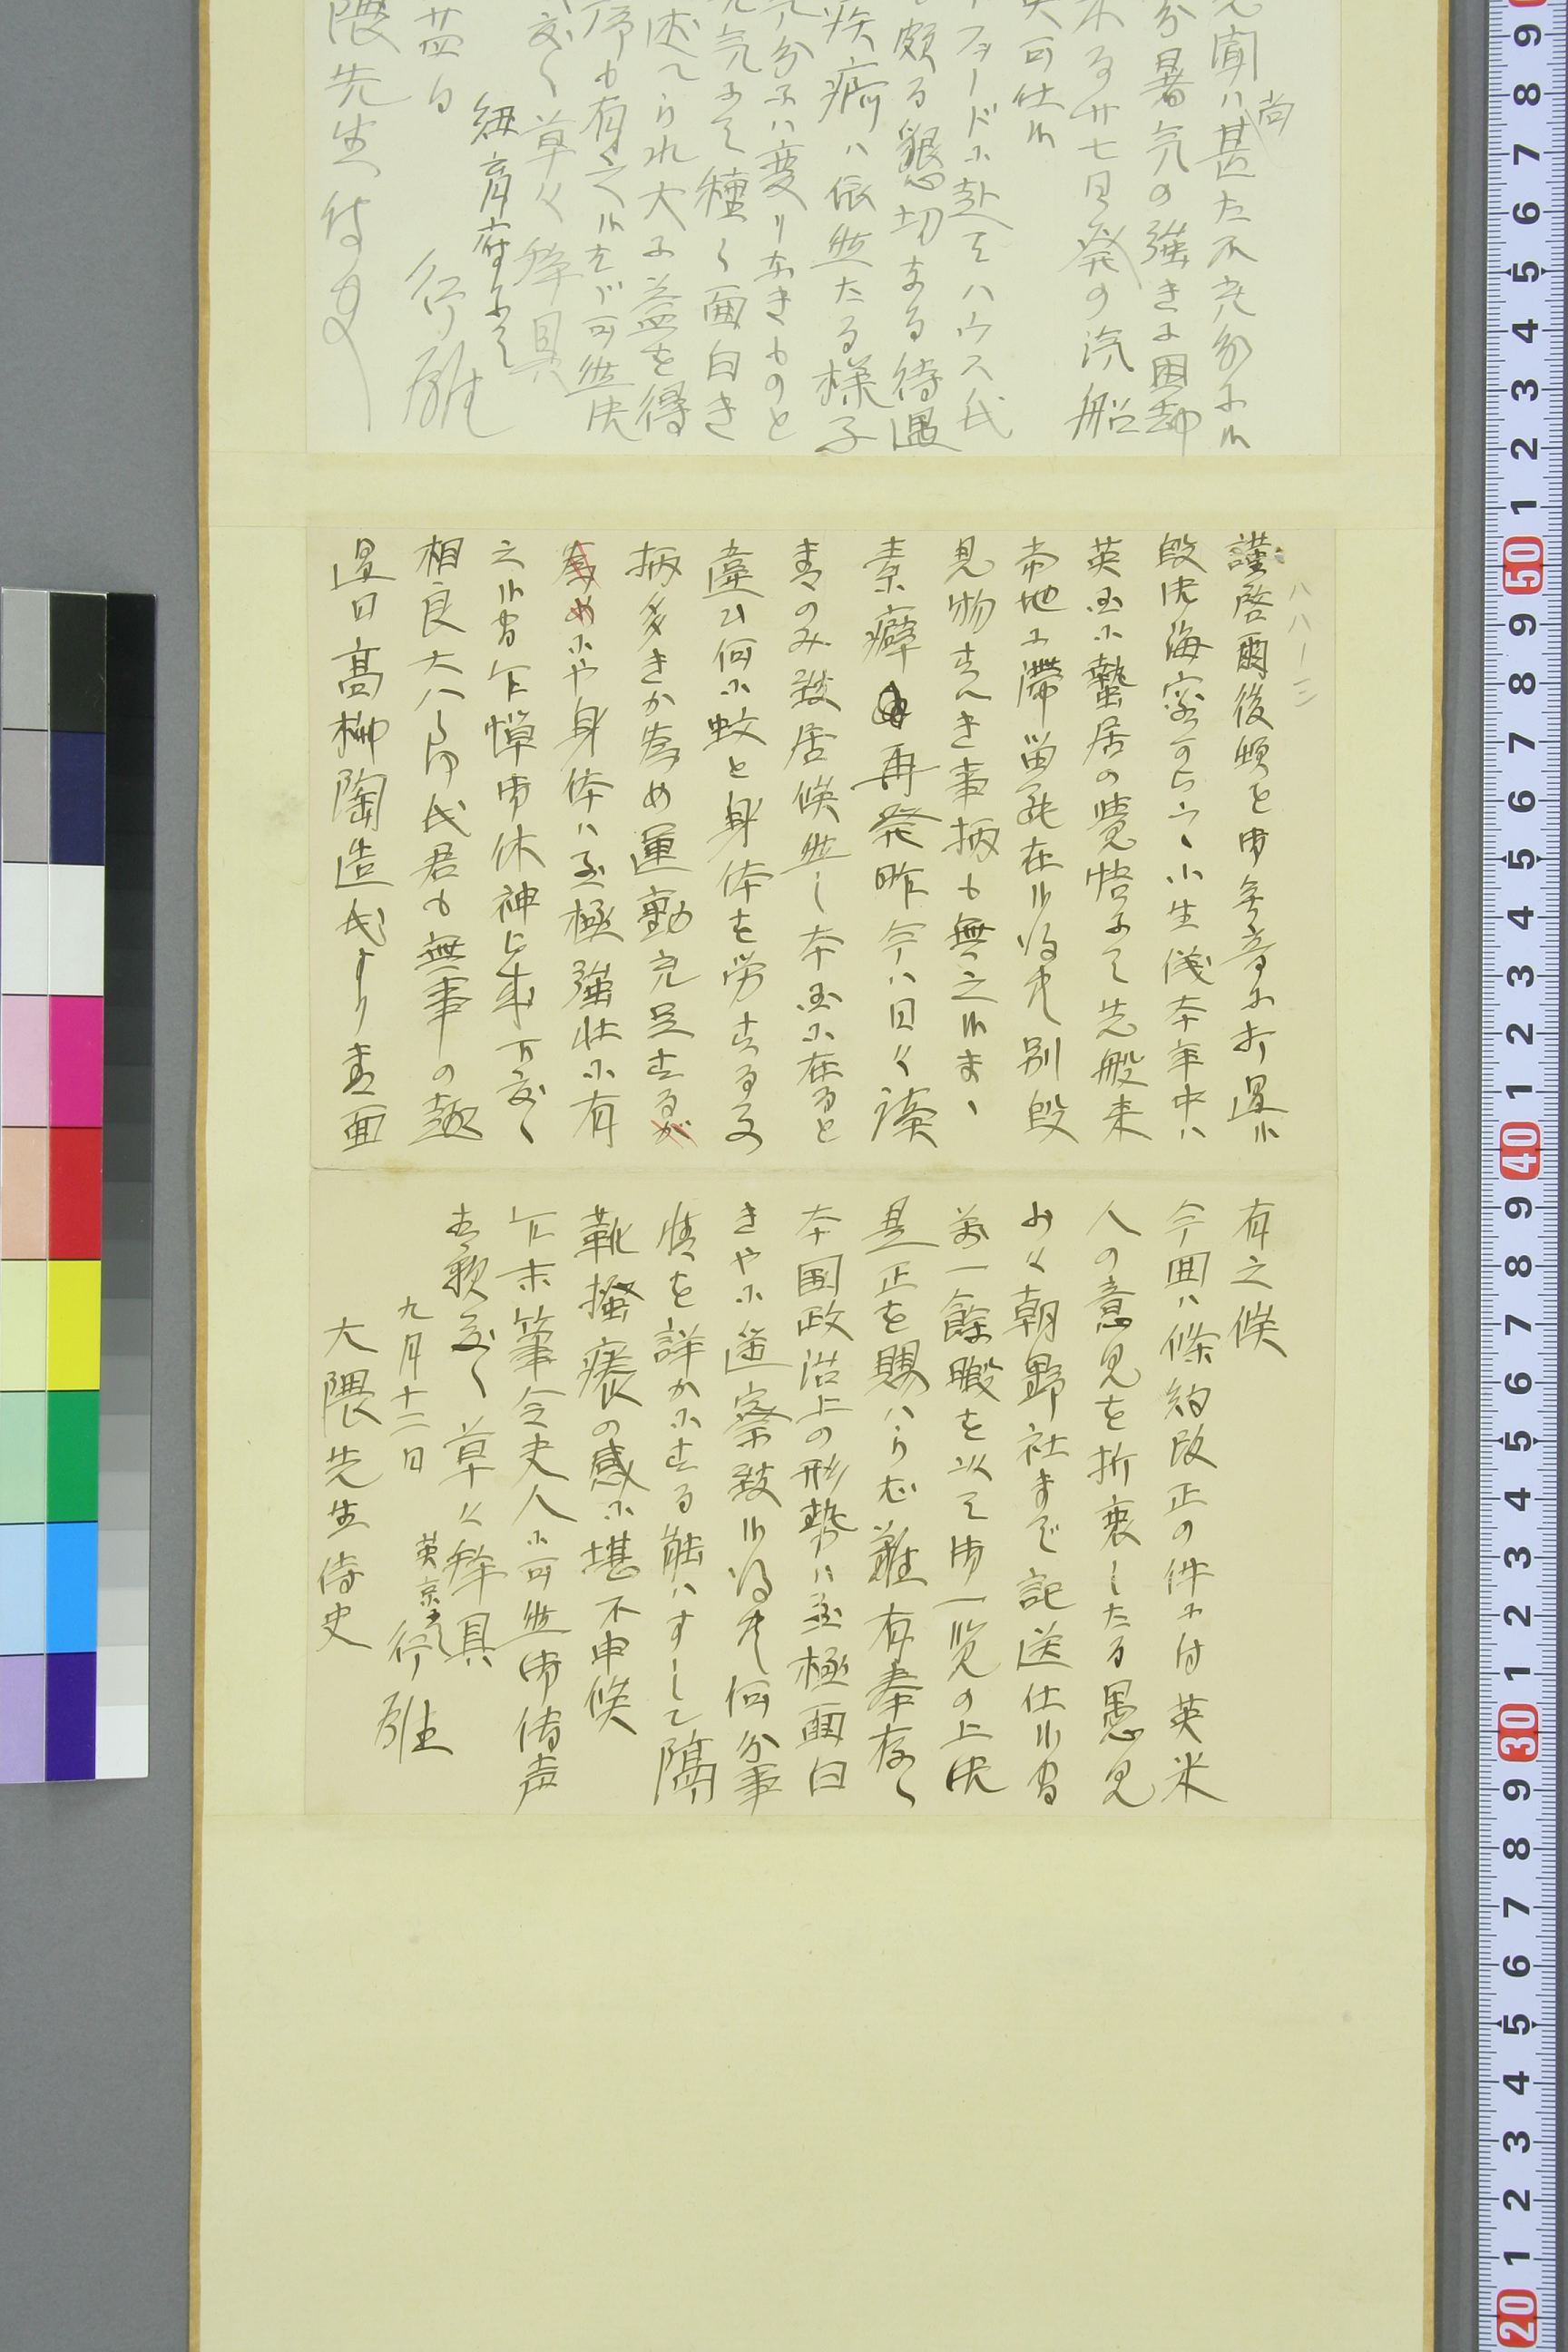 尚
見聞ハ甚た不充分に候
分暑気の強きに困却
来る廿七日発の汽船
可仕候
フォードに赴きハウス氏
頗る懇切なる待遇
疾痾ハ依然たる様子
元気にハ変りなきものと
元気にて種々面白き
述へられ大に益を得
序も有之候ハヾ可然御
草々拝具
紐育府にて
行雄
隈先生侍史
八八ー三
謹啓爾後頓と御無音に打過候
段御海容可被下候小生儀本年中ハ
英国に蟄居の覚悟にて先般来
当地に滞留罷在候得共別段
見物すへき事柄も無之候まゝ
素癖再発昨今ハ日々読
書のみ致居候然し本国に在ると
違ひ何に蚊と身体を労する事
柄多きか為め運動充足する
為めにや身体ハ至極強壮に有
之候間乍憚御休神被下度候
相良大八郎氏君も無事の趣
過日高柳陶造氏より書面
有之候
今回ハ條約改正の件に付英米
人の意見を折衷したる愚見
少々朝野社まで記送仕候間
萬一餘暇を以て御一覧の上御
是正を賜ハらむ難有奉存候
本国政治上の形勢ハ至極面白
きやに遥察致候得共何分事
情を詳かにする能ハすして隔
靴掻痒の感に堪不申候
乍末筆令夫人に可然御傳声
奉願候 草々拝具
九月十二日
英京にて
行雄
大隈先生侍史